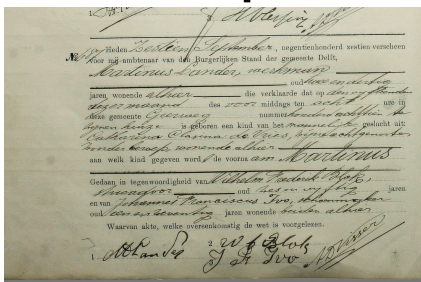 Heden Zestien September, negentienhonderd zestien verscheen
voor mij ambtenaar van den Burgerlijken Stand der gemeente Delft,
Martinus Sander, werkman
oud twee en dertig
jaren, wonende alhier die verklaarde dat op den vijftienden
dezer maand des voor middags ten acht ure in
deze gemeente Geerweg nummer honderd achttien te
zijnen huize is geboren een kind van het mannelijk geslacht uit:
Catharina Clasina de Vries, zijne echtgenoote
zonder beroep wonende alhier
aan welk kind gegeven word de voornaam Martinus
Gedaan in tegenwoordigheid van Wilhelm Frederik Blok,
oud zes en vijftig jaren
en van Johannes Franciscus Ivo, schoenmaker
oud een en zeventig jaren wonende beiden alhier
Waarvan akte, welke overeenkomstig de wet is voorgelezen.
W F Blok
J F Ivo